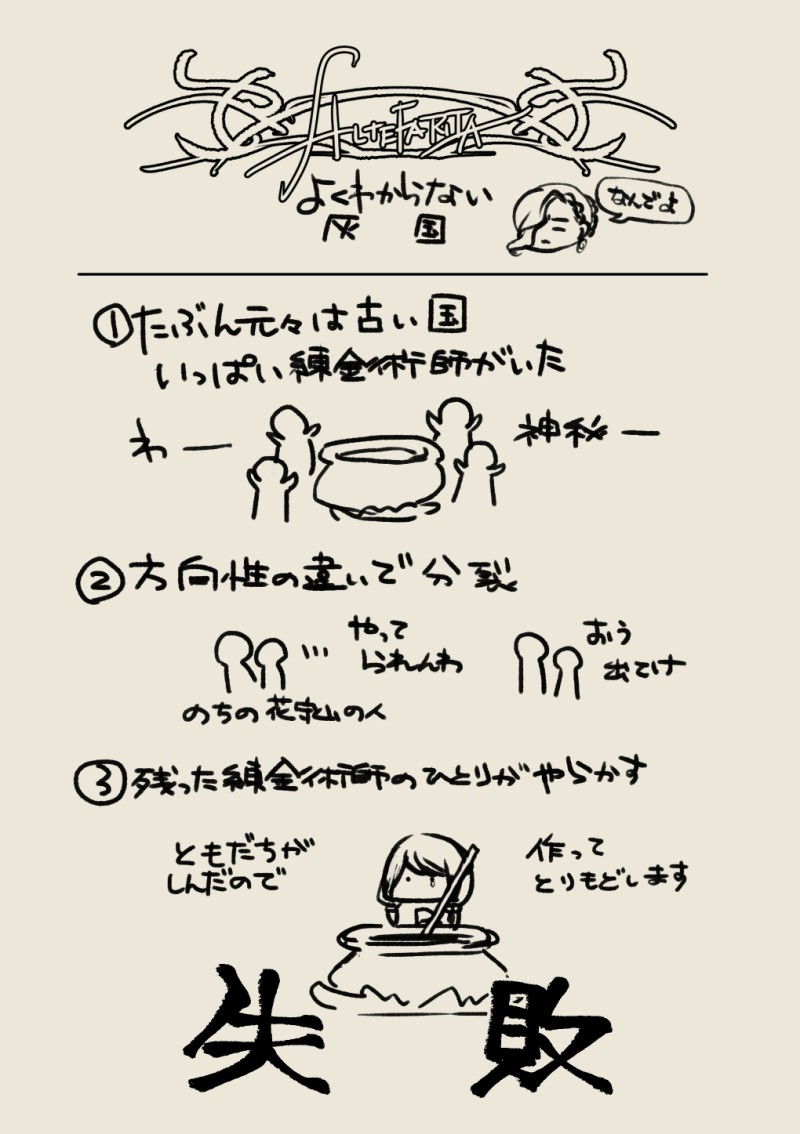 ALTEFARITA
よくわからない
灰国
なんでよ
①たぶん元々は古い国
いっぱい錬金術師がいた
わー
神秘ー
②方向性の違いで分裂
やって
られんわ
おう
出てけ
のちの花守山の人
③残った錬金術師のひとりがやらかす
ともだちが
しんだので
作って
とりもどします
失敗